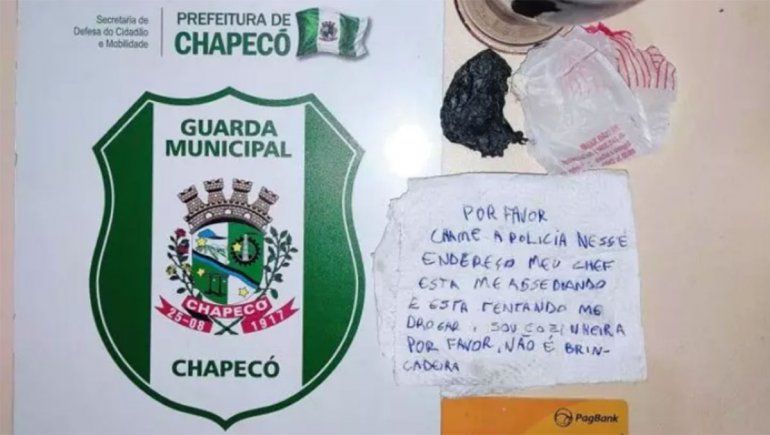 Secretaria de
Defesa do Cidadão
e Mobilidade
PREFEITURA DE
CHAPECÓ
GUARDA
MUNICIPAL
CHAPECÓ
25-08 1917
CHAPECÓ
POR FAVOR
CHAME A POLICIA NESSE
ENDEREÇO MEU CHEF
ESTA ME ASSEDIANDO
E ESTA TENTANDO ME
DROGAR, SOU COZINHEIRA
POR FAVOR, NÃO É BRIN-
CADEIRA
PagBank